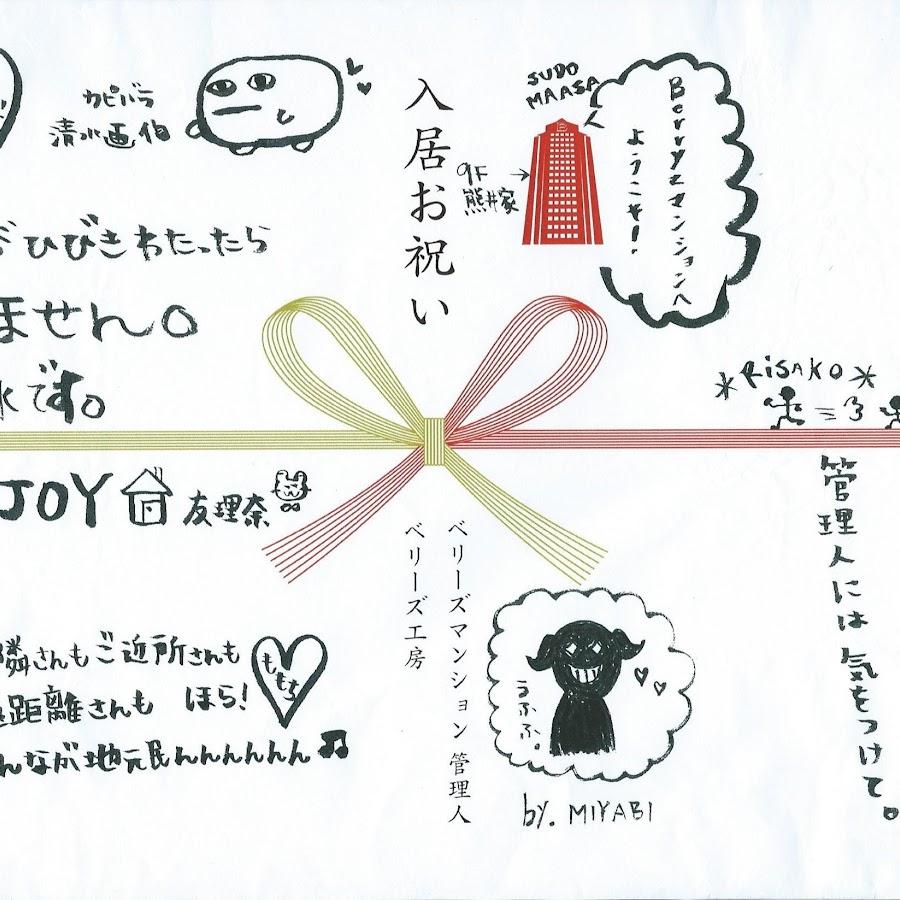 カピバラ
清水画伯
入居お祝い
SUDO
MAASA
9F
熊井家
Berryzマンションへ
ようこそ!
ひびきわたったら
ません。
です。
*RiSAKO*
管理人には気をつけて。
JOY
友理奈
ベリーズマンション 管理人
ベリーズ工房
隣さんもご近所さんも
距離さんも ほら!
んなが地元民んんんんんん
ももち
うふふ。
by. MIYABI